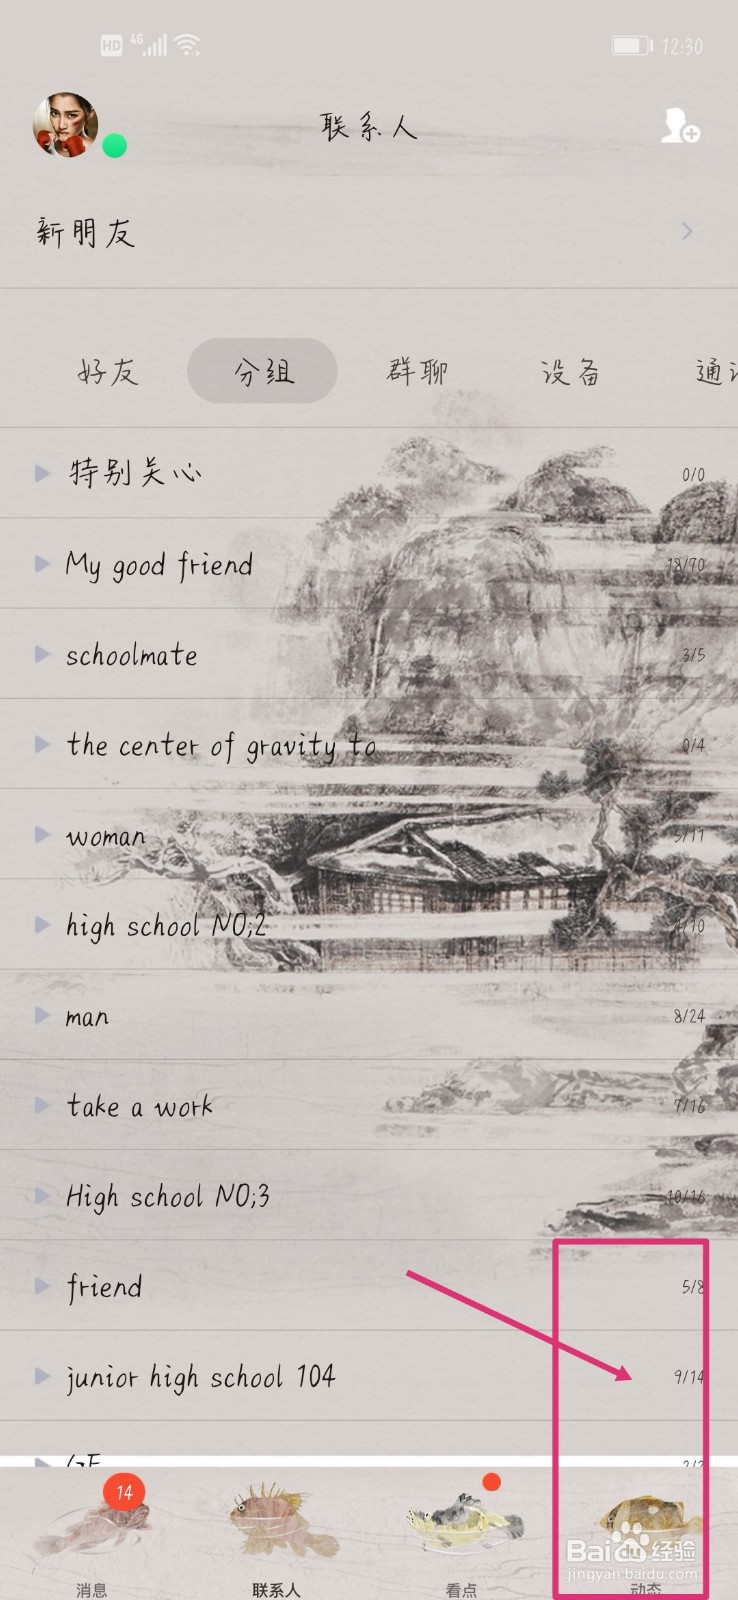 HD 4G 12:30
联系人
新朋友
好友 分组 群聊 设备
特别关心 0/0
My good friend 18/70
schoolmate 3/5
the center of gravity to 0/4
woman 5/11
high school NO;2 /10
man 8/24
take a work 7/16
High school NO;3 10/16
friend 5/8
junior high school 104 9/14
14
Baidu 经验
jingyan.baidu.com
消息 联系人 看点 动态